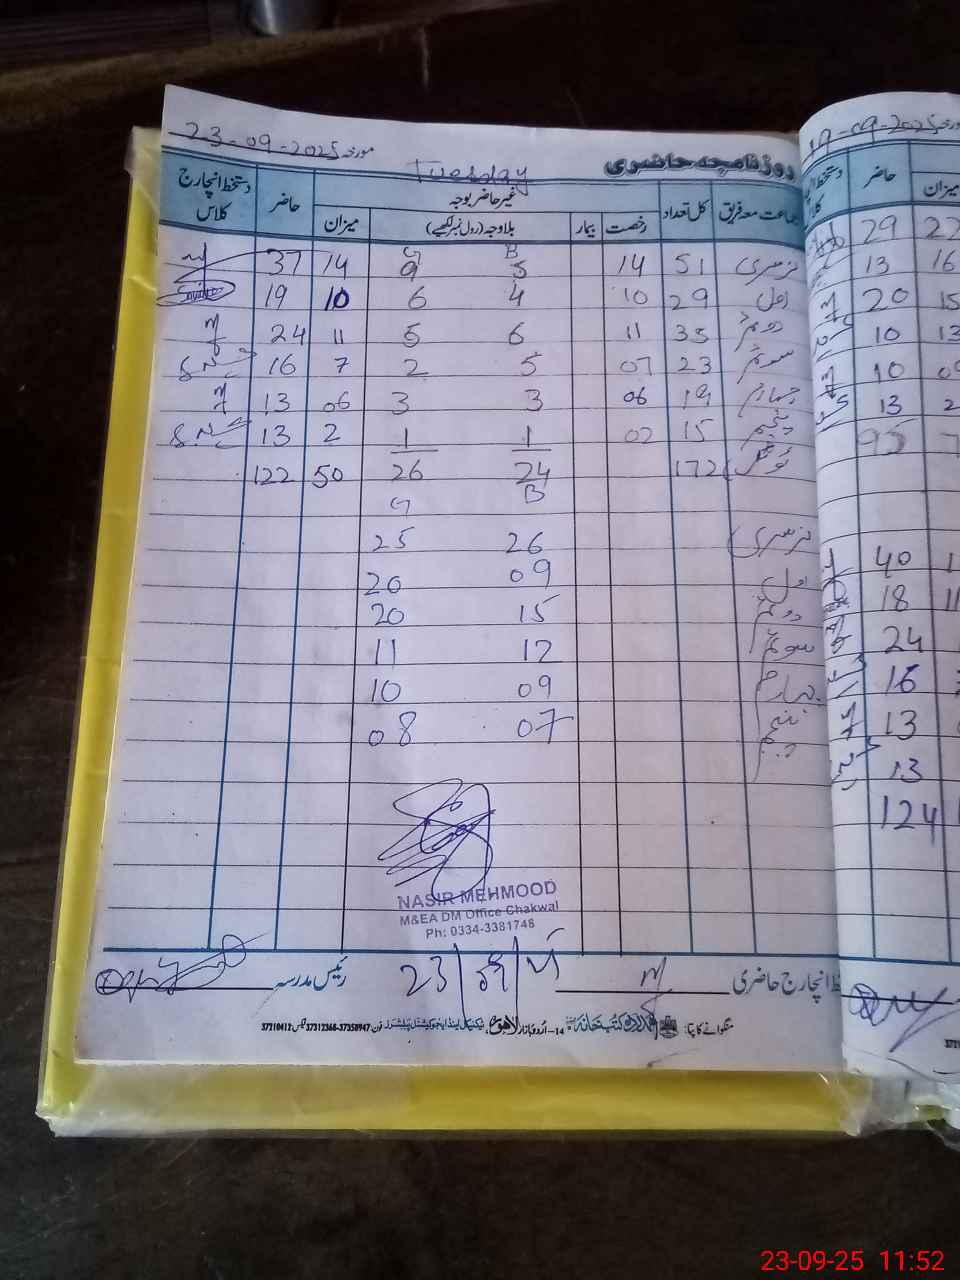 23-09-2025 مورخہ
Tuesday
روزنامچہ حاضری
جماعت معہ فریق کل تعداد غیر حاضر بوجہ حاضر دستخط انچارج کلاس
رخصت بیمار بلاوجہ (رول نمبر لکھیے) میزان
G B
نرسری 51 14 5 9 14 37
اول 29 10 4 6 10 19
دوئم 35 11 6 5 11 24
سوئم 23 07 5 2 7 16
چہارم 19 06 3 3 06 13
پنجم 15 02 1 1 2 13
ٹوٹل 172 24 26 50 122
G B
نرسری 26 25
اول 09 20
دوئم 15 20
سوئم 12 11
چہارم 09 10
پنجم 07 08
NASIR MEHMOOD
M&EA DM Office Chakwal
Ph: 0334-3381746
23/09/25
دستخط انچارج حاضری
رئیس مدرسہ
منگوانے کا پتا: امدادی کتب خانہ 14-اُردو بازار لاہور، فون: 37358947-37312368 فیکس: 37210412
19-09-2025 مورخہ
حاضر میزان
29 22
13 16
20 15
10 13
10 09
13 2
95 7
40 1
18 11
24
16
13
13
124 1
23-09-25 11:52